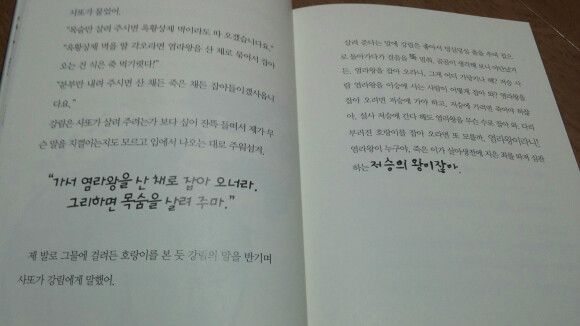 사또가 물었어.
"목숨만 살려 주시면 옥황상제 먹이라도 따 오겠습니다요."
"옥황상제 먹을 발 각오라면 염라왕을 산 채로 묶어서 잡아
오는 건 식은 죽 먹기렷다!"
"분부만 내려 주시면 산 채든 죽은 채든 잡아들이겠사옵니
다요."
강림은 사또가 살려 주려는가 보다 싶어 잔뜩 들떠서 제가 무
슨 말을 지껄이는지도 모르고 입에서 나오는 대로 주워섬겨.
"가서 염라왕을 산 채로 잡아 오너라.
그리하면 목숨을 살려 주마."
제 발로 그물에 걸려든 호랑이를 본 듯 강림의 말을 반기며
사또가 강림에게 말했어.
살려 준다는 말에 강림은 좋아서 덩실덩실 춤을 추며 집으
로 돌아가다가 걸음을 뚝 멈춰. 곰곰이 생각해 보니
든. 염라왕을 잡아 오라니, 그게 어디 가당키나 해? 저승 사
람 염라왕을 이승에 사는 사람이 어떻게 잡아 와? 염라왕을
잡아 오려면 저승에 가야 하고, 저승에 가려면 죽어야 하잖
아. 설사 저승에 간다 해도 염라왕을 무슨 수로 잡아 와. 다리
부러진 호랑이를 잡아 오라면 또 모를까, 염라왕이라니!
염라왕이 누구야. 죽은 이가 살아생전에 지은 죄를 따져 심판
하는 저승의 왕이잖아.